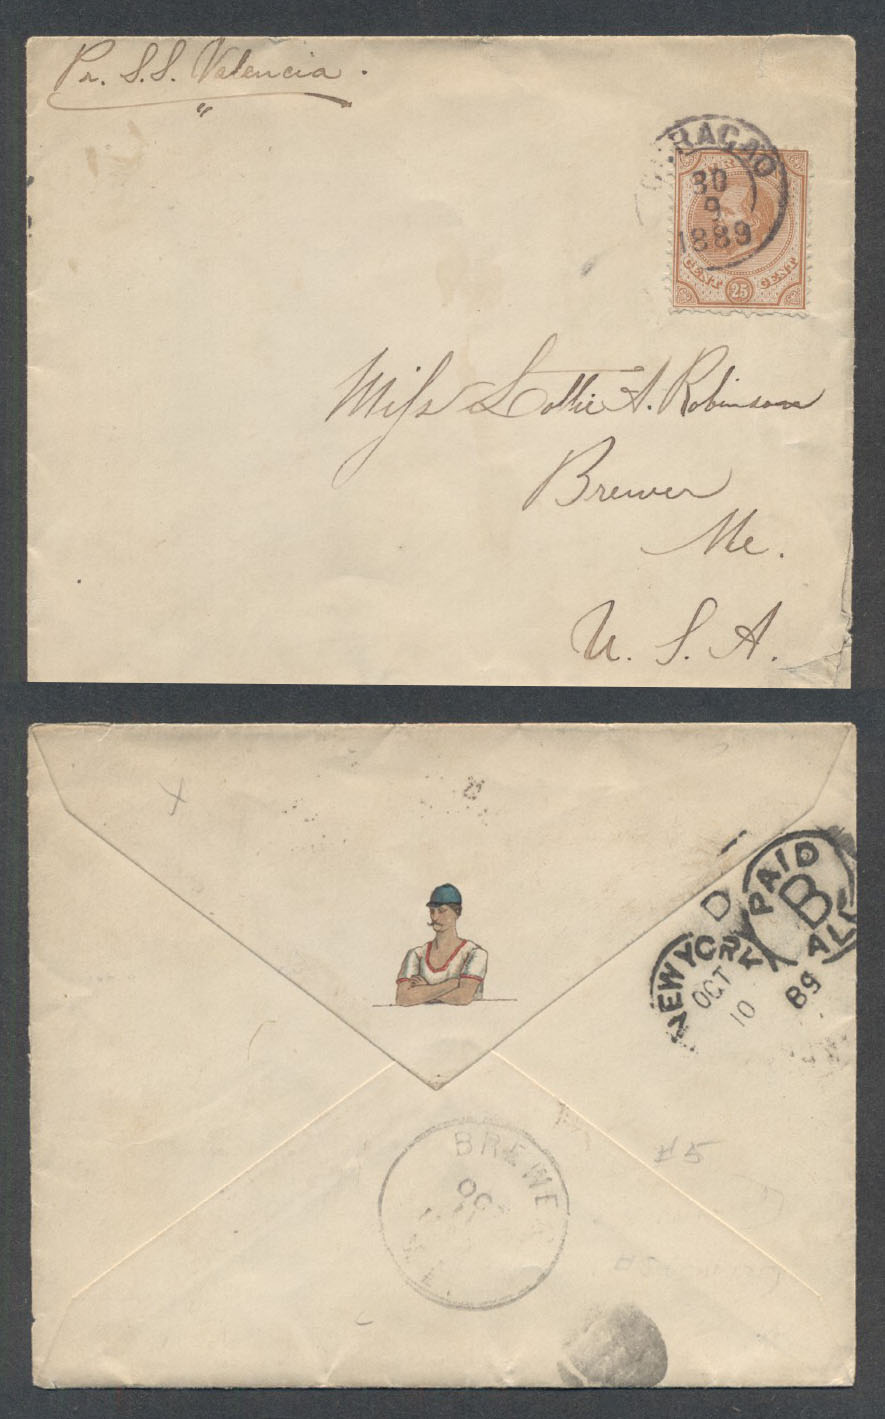 Pr. S.S. Valencia.
CURACAO
30
9
1889
CENT 25 CENT
Miss Lottie A. Robinson
Brewer
Me.
U. S. A.
D
NEW YORK
OCT
10
89
PAID
B
ALL
BREWER
OCT
11
ME
#5